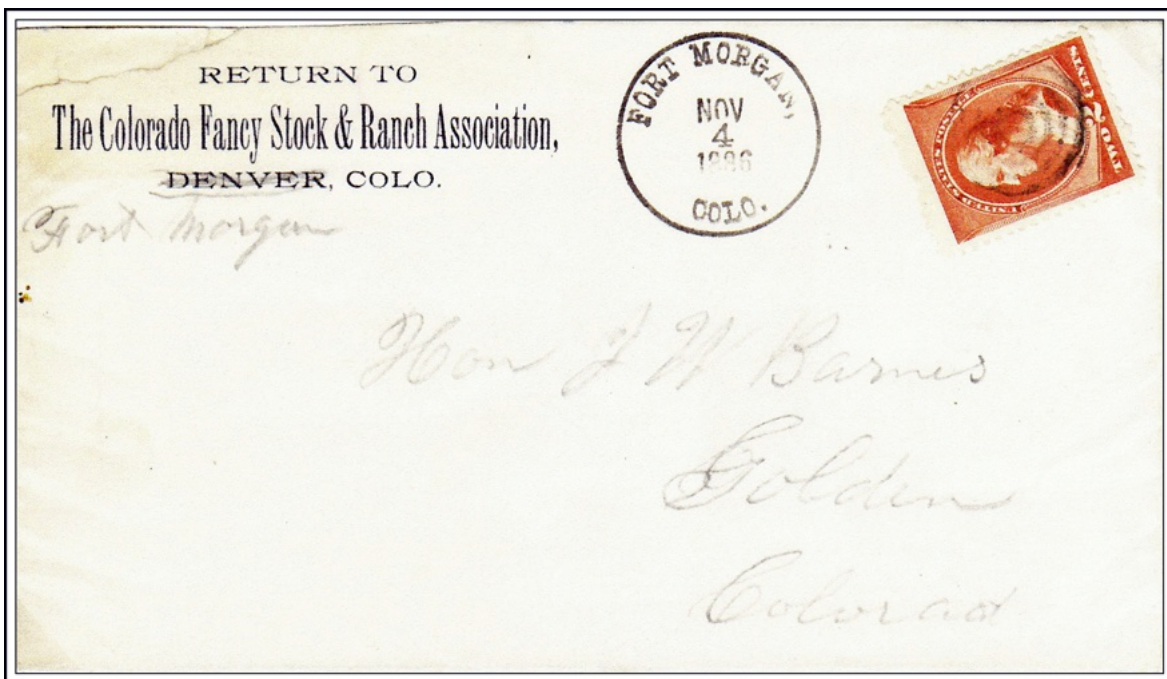 RETURN TO
The Colorado Fancy Stock & Ranch Association,
DENVER, COLO.
Fort Morgan
FORT MORGAN,
NOV
4
1886
COLO.
UNITED STATES POSTAGE
TWO 2 CENTS
Hon J W Barnes
Golden
Colorad